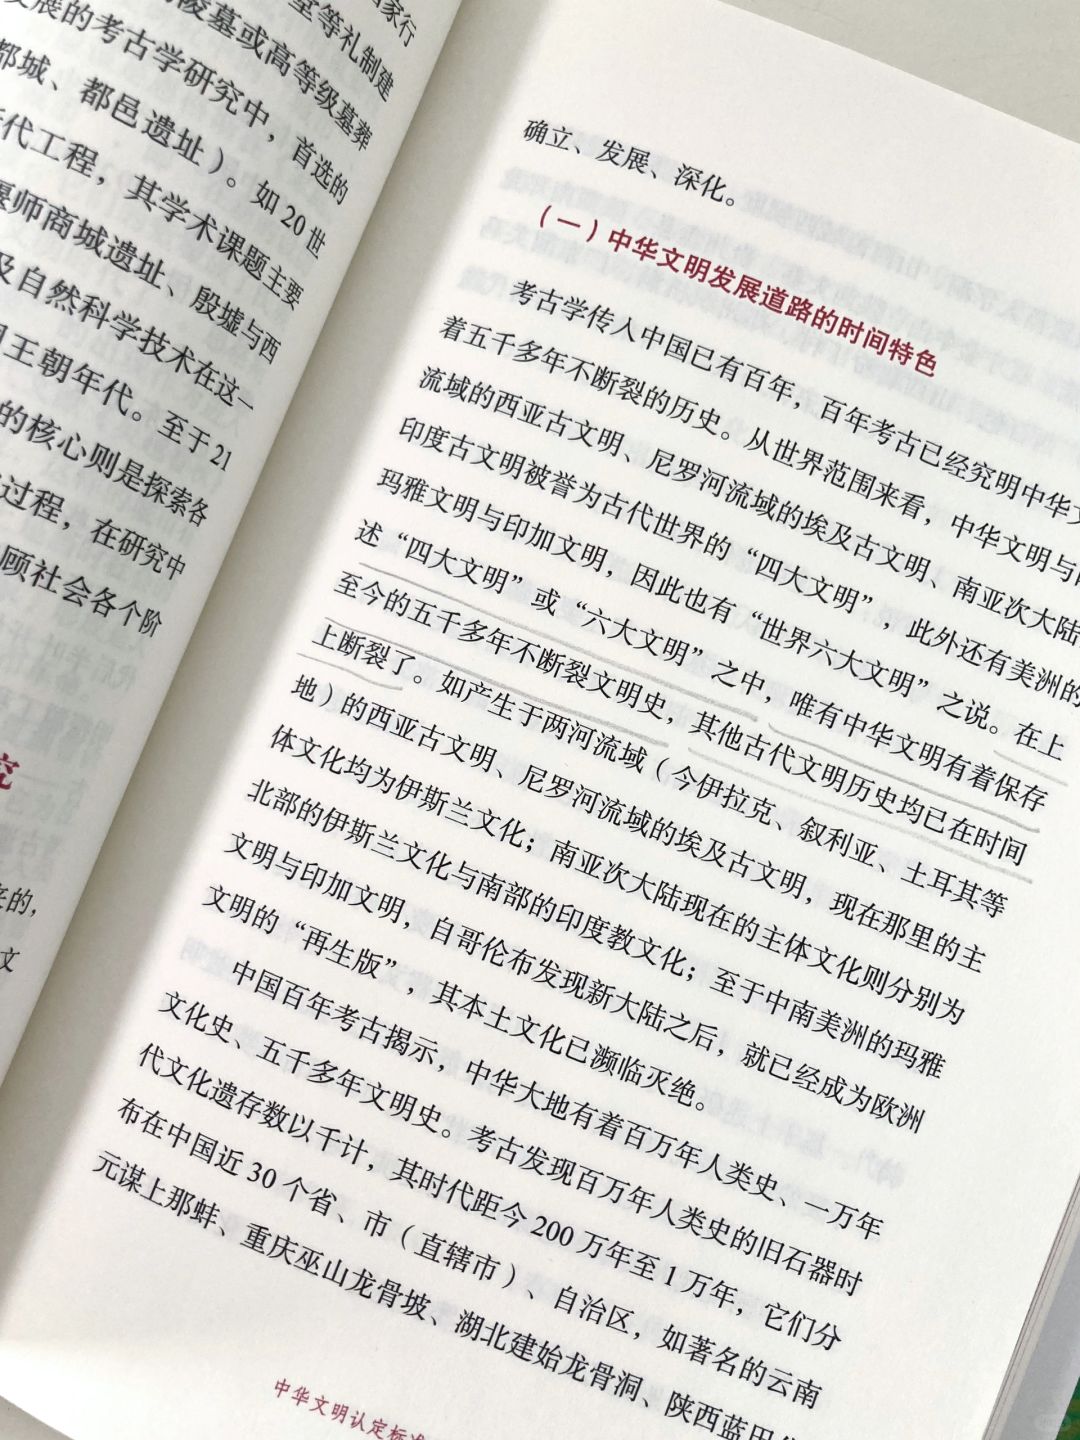 家行
堂等礼制建
陵墓或高等级墓葬
发展的考古学研究中，首选的
都城、都邑遗址）。如20世
代工程，其学术课题主要
偃师商城遗址、殷墟与西
及自然科学技术在这一
王朝年代。至于21
的核心则是探索各
过程，在研究中
顾社会各个阶
究
来的，
文
确立、发展、深化。
（一）中华文明发展道路的时间特色
考古学传入中国已有百年，百年考古已经究明中华文
着五千多年不断裂的历史。从世界范围来看，中华文明与
流域的西亚古文明、尼罗河流域的埃及古文明、南亚次大陆
印度古文明被誉为古代世界的“四大文明”，此外还有美洲的
玛雅文明与印加文明，因此也有“世界六大文明”之说。在上
述“四大文明”或“六大文明”之中，唯有中华文明有着保存
至今的五千多年不断裂文明史，其他古代文明历史均已在时间
上断裂了。如产生于两河流域（今伊拉克、叙利亚、土耳其等
地）的西亚古文明、尼罗河流域的埃及古文明，现在那里的主
体文化均为伊斯兰文化；南亚次大陆现在的主体文化则分别为
北部的伊斯兰文化与南部的印度教文化；至于中南美洲的玛雅
文明与印加文明，自哥伦布发现新大陆之后，就已经成为欧洲
文明的“再生版”，其本土文化已濒临灭绝。
中国百年考古揭示，中华大地有着百万年人类史、一万年
文化史、五千多年文明史。考古发现百万年人类史的旧石器时
代文化遗存数以千计，其时代距今200万年至1万年，它们分
布在中国近30个省、市（直辖市）、自治区，如著名的云南
元谋上那蚌、重庆巫山龙骨坡、湖北建始龙骨洞、陕西蓝田
中华文明认定标准